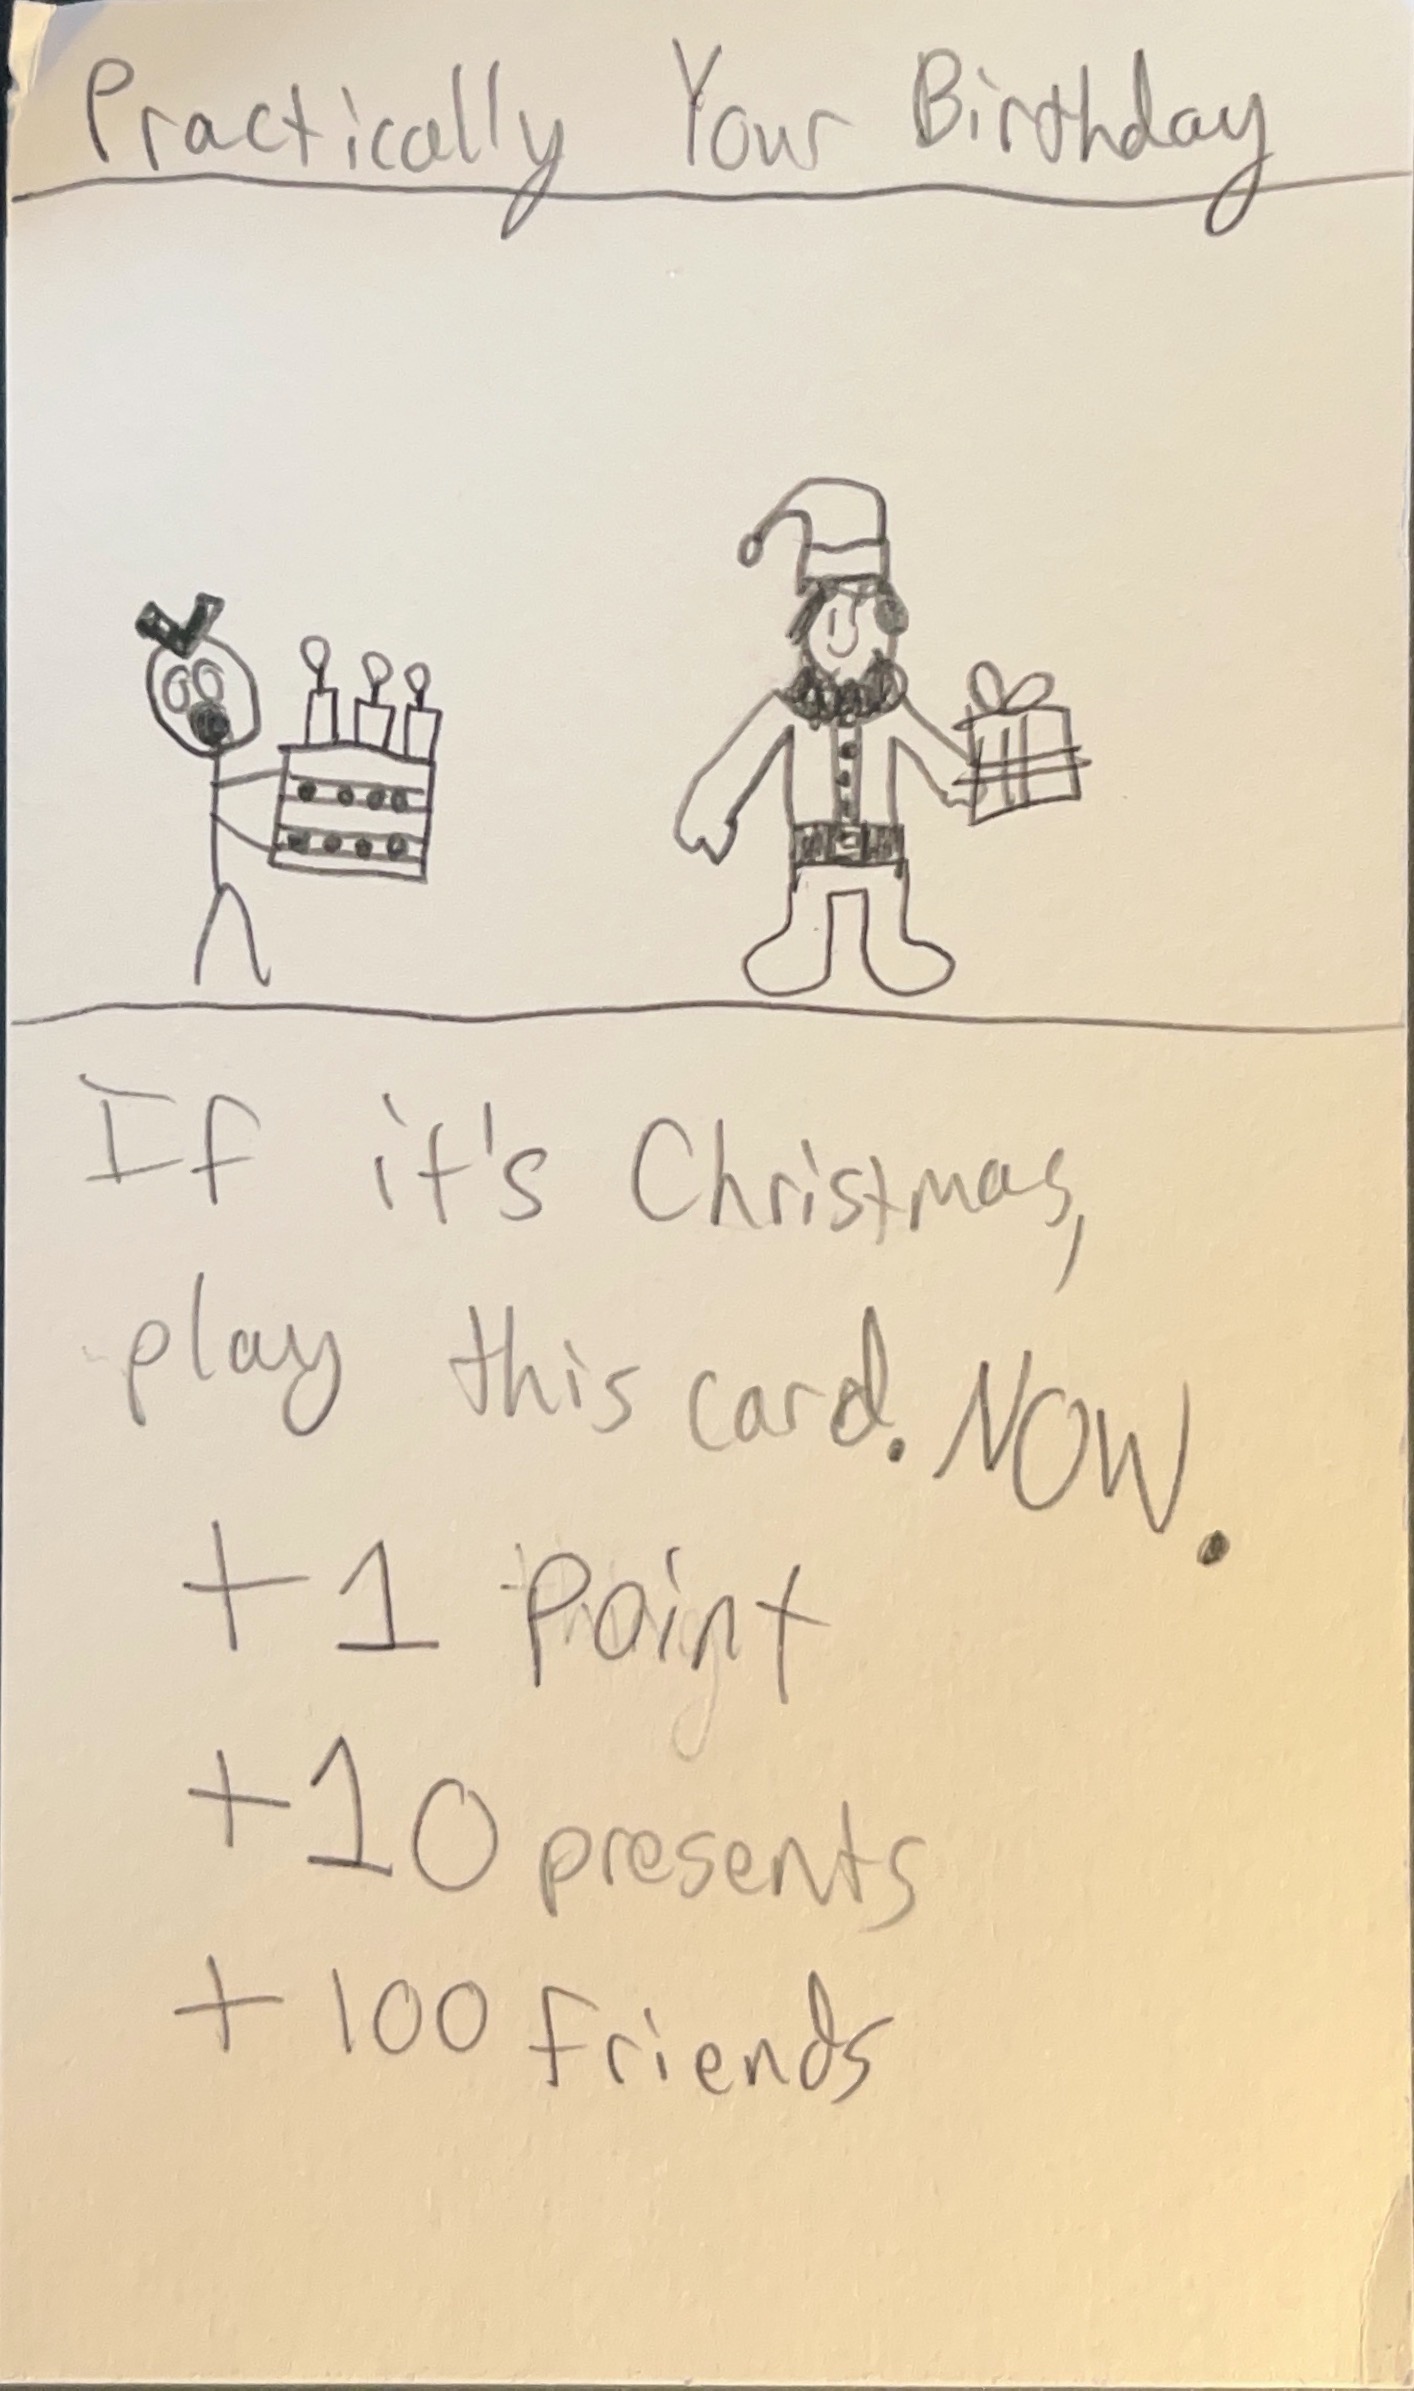 Practically Your Birthday
If it's Christmas,
play this card. NOW.
+1 Point
+10 presents
+100 friends